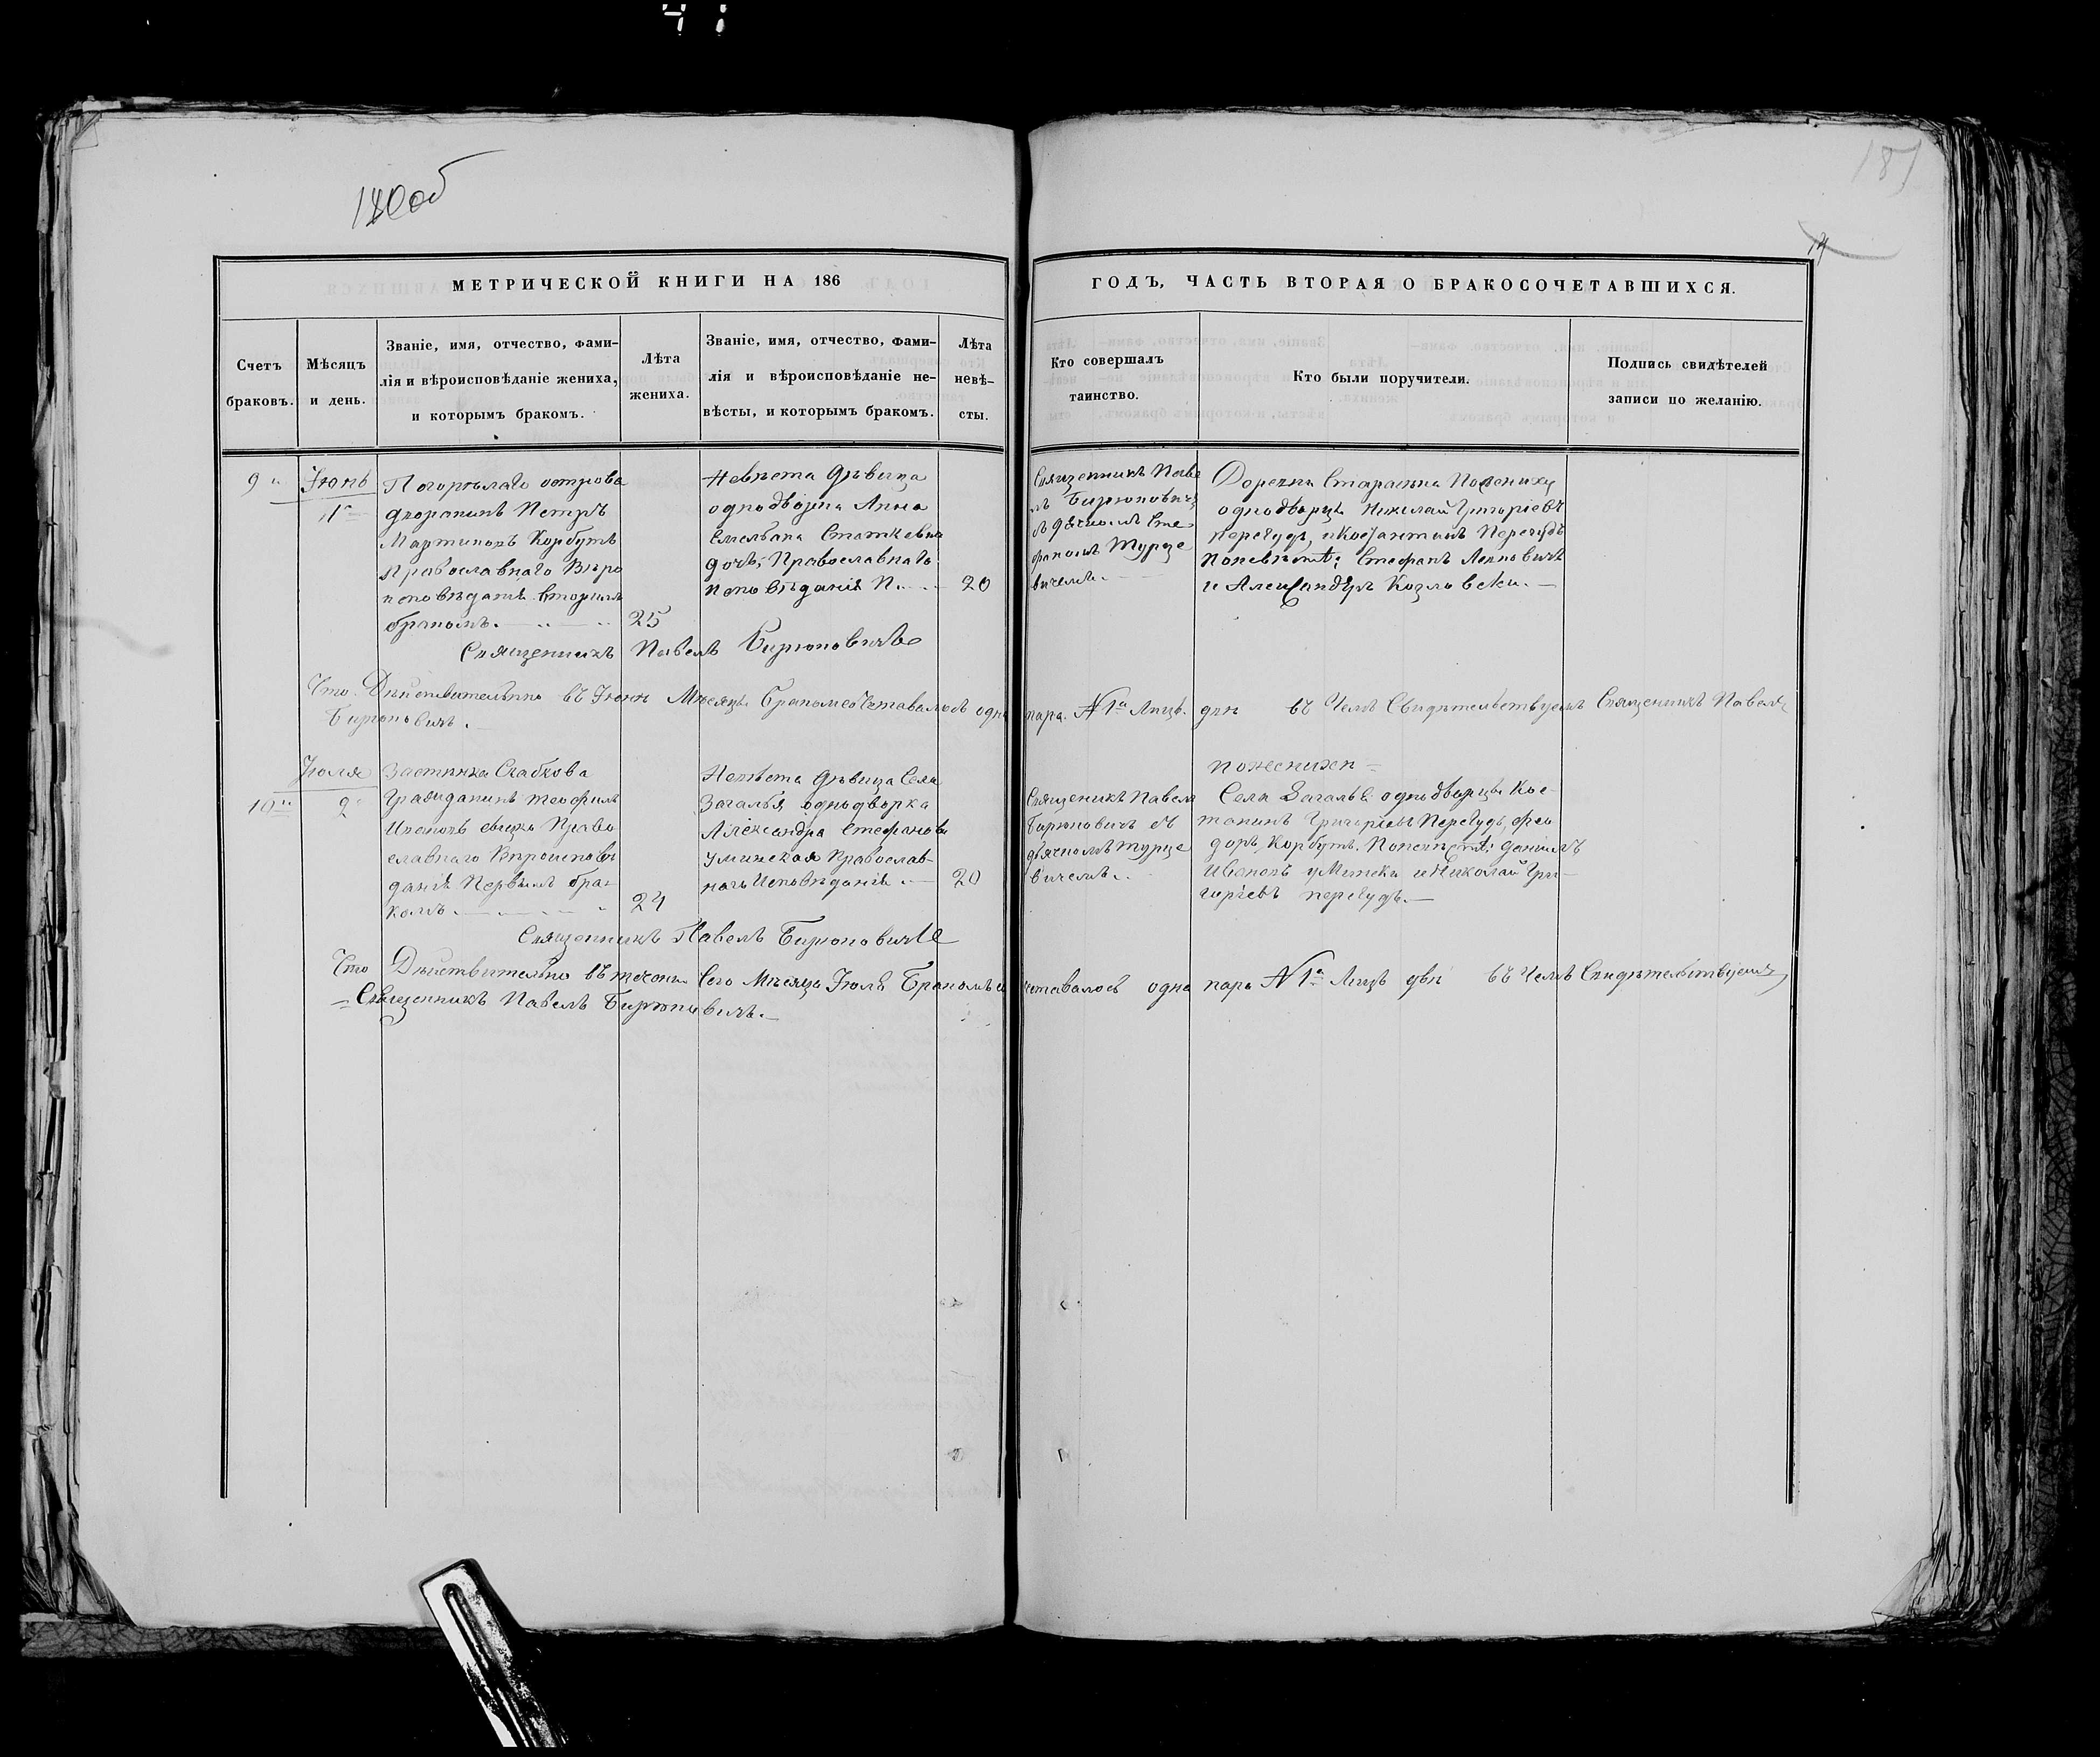 180об
181
МЕТРИЧЕСКОЙ КНИГИ НА 186
ГОДЪ, ЧАСТЬ ВТОРАЯ О БРАКОСОЧЕТАВШИХСЯ.
Счетъ
браковъ.
Мѣсяцъ
и день.
Званіе, имя, отчество, фами-
лія и вѣроисповѣданіе жениха,
и которымъ бракомъ.
Лѣта
жениха.
Званіе, имя, отчество, фами-
лія и вѣроисповѣданіе не-
вѣсты, и которымъ бракомъ.
Лѣта
невѣ-
сты.
Кто совершалъ
таинство.
Кто были поручители.
Подпись свидѣтелей
записи по желанію.
9
Іюнь
Погорѣлаго острова
дворанинъ Петръ
Мартиновъ Корбутъ
Православнаго Вѣро
исповѣданія вторимъ
бракомъ.
25
Невѣста дѣвица
однодворка Анна
Емельяна Статкевича
дочь, Православнаго
исповѣданія П.
20
Священникъ Павел
ъ Бирюковичъ
съ дьячкомъ Сте
фаномъ Турце
вичемъ.
Деревни
однодворцы Николай Григоріевъ
Перегудъ, и Костантинъ Перегудъ
Поневѣстѣ: Стефанъ
и Александръ Козловски.
Священникъ Павелъ Бирюковичъ
Что Дѣйствительно въ Іюнѣ Мѣсяцѣ Бракомсочеталось одна пара № 1 Лицъ двѣ въ Чемъ Свидѣтельствуемъ Священникъ Павелъ
Бирюковичъ.
10
Іюля
2
Застѣнка Скабкова
Гражданинъ Теофилъ
Ивановъ
славнаго Вѣроисповѣ
данія Первымъ бра-
комъ.
24
Невѣста дѣвица Села
Загалья однодворка
Александра Стефанова
Уминская Православ-
наго Исповѣданія.
20
Священикъ Павелъ
Бирюковичъ съ
дьячкомъ Турце
вичемъ.
пожениху
Села Загалья однодворцы Кос-
тантинъ Григоріевъ Перегудъ, Фео
доръ Корбутъ. Поневѣстѣ: Даніилъ
Ивановъ Умински и Николай Гри-
горіевъ перегудъ.
Священникъ Павелъ Бирюковичъ
Что Дѣйствительно въ теченіи Сего Мѣсяца Іюля Бракомъ сочеталось одна пара № 1 Лицъ двѣ въ Чемъ Свидѣтельствуемъ
Священникъ Павелъ Бирюковичъ.